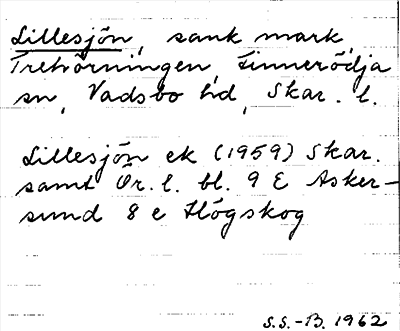 Lillesjön, sank mark,
Trehörningen, Finnerödja
sn, Vadsbo hd, Skar. l.
Lillesjön ek (1959) Skar.
samt Ör. l. bl. 9 E Asker-
sund 8 e Högskog
S.S.-B. 1962